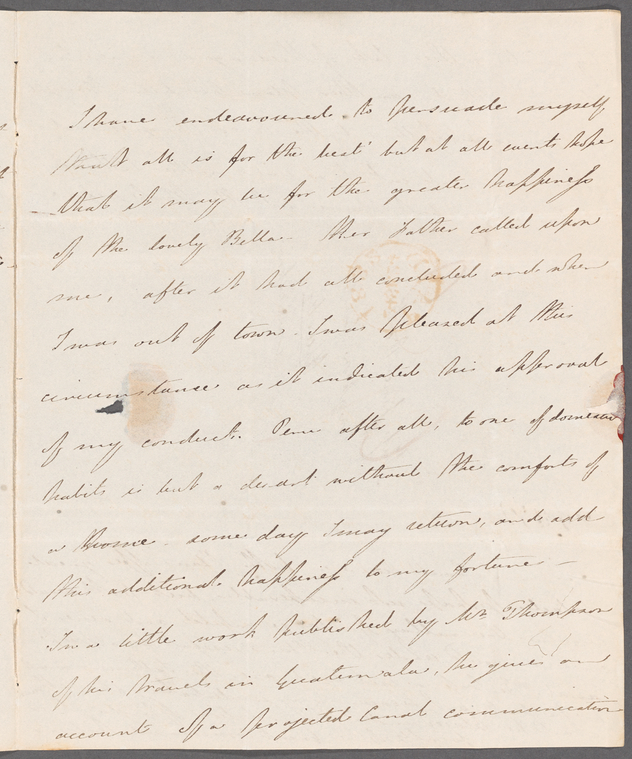 I have endeavoured to persuade myself
that all is for the best but at all events hope
that it may be for the greater happiness
of the lovely Bella - Her Father called upon
me, after it had all concluded and when
I was out of town. I was pleased at this
circumstance as it indicated his approval
of my conduct. Peru after all, to one of domestic
habits is but a desart without the comforts of
a Home - some day I may return, and add
this additional happiness to my fortune -
In a little work published by Mr Thompson
of his travels in Guatemala, he gives an
account of a projected Canal communication